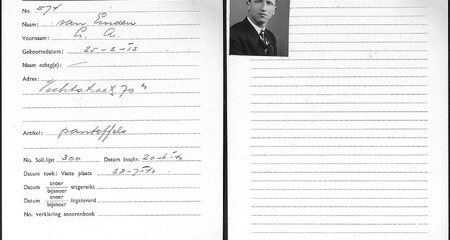 No. 574
Naam: van Emden
Voornaam: A.
Geboortedatum: 25-2-'13
Naam echtg(e): —
Adres:
Vechtstraat 70
Artikel: pantoffels
No. Soll.lijst 300 Datum Inschr. 20-6-'40
Datum toek: Vaste plaats 28-7-'40
Datum snoer bijsnoer uitgereikt
Datum snoer bijsnoer ingeleverd
No. verklaring snoerenboek